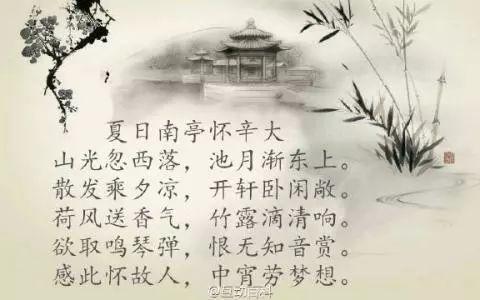 夏日南亭怀辛大
山光忽西落，池月渐东上。
散发乘夕凉，开轩卧闲敞。
荷风送香气，竹露滴清响。
欲取鸣琴弹，恨无知音赏。
感此怀故人，中宵劳梦想。
@互动百科